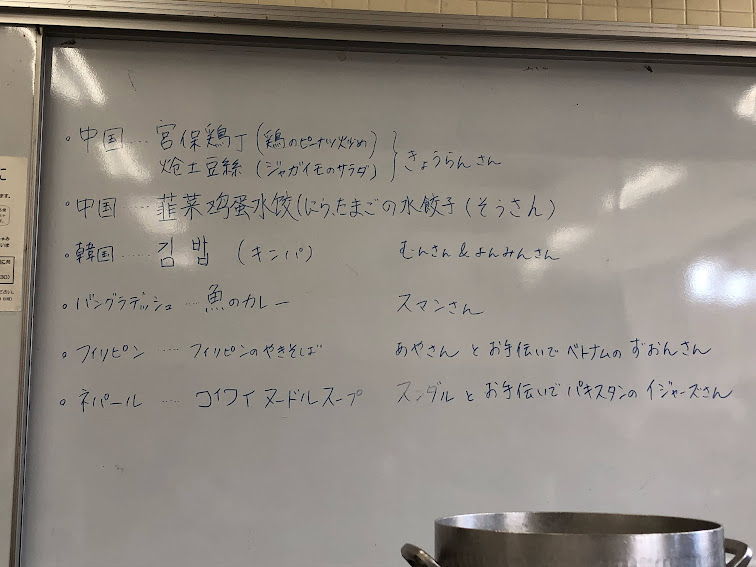 ・中国……宮保鶏丁(鶏のピーナツ炒め)
炝土豆絲(ジャガイモのサラダ) きょうらんさん
・中国…韮菜鸡蛋水餃(にら、たまごの水餃子(そうさん)
・韓国……김밥(キンパ) むんさん&よんみんさん
・バングラデッシュ…魚のカレー スマンさん
・フィリピン……フィリピンのやきそば あやさんとお手伝いでベトナムのずおんさん
・ネパール……コイワイヌードルスープ スンダルとお手伝いでパキスタンのイジャーズさん
に